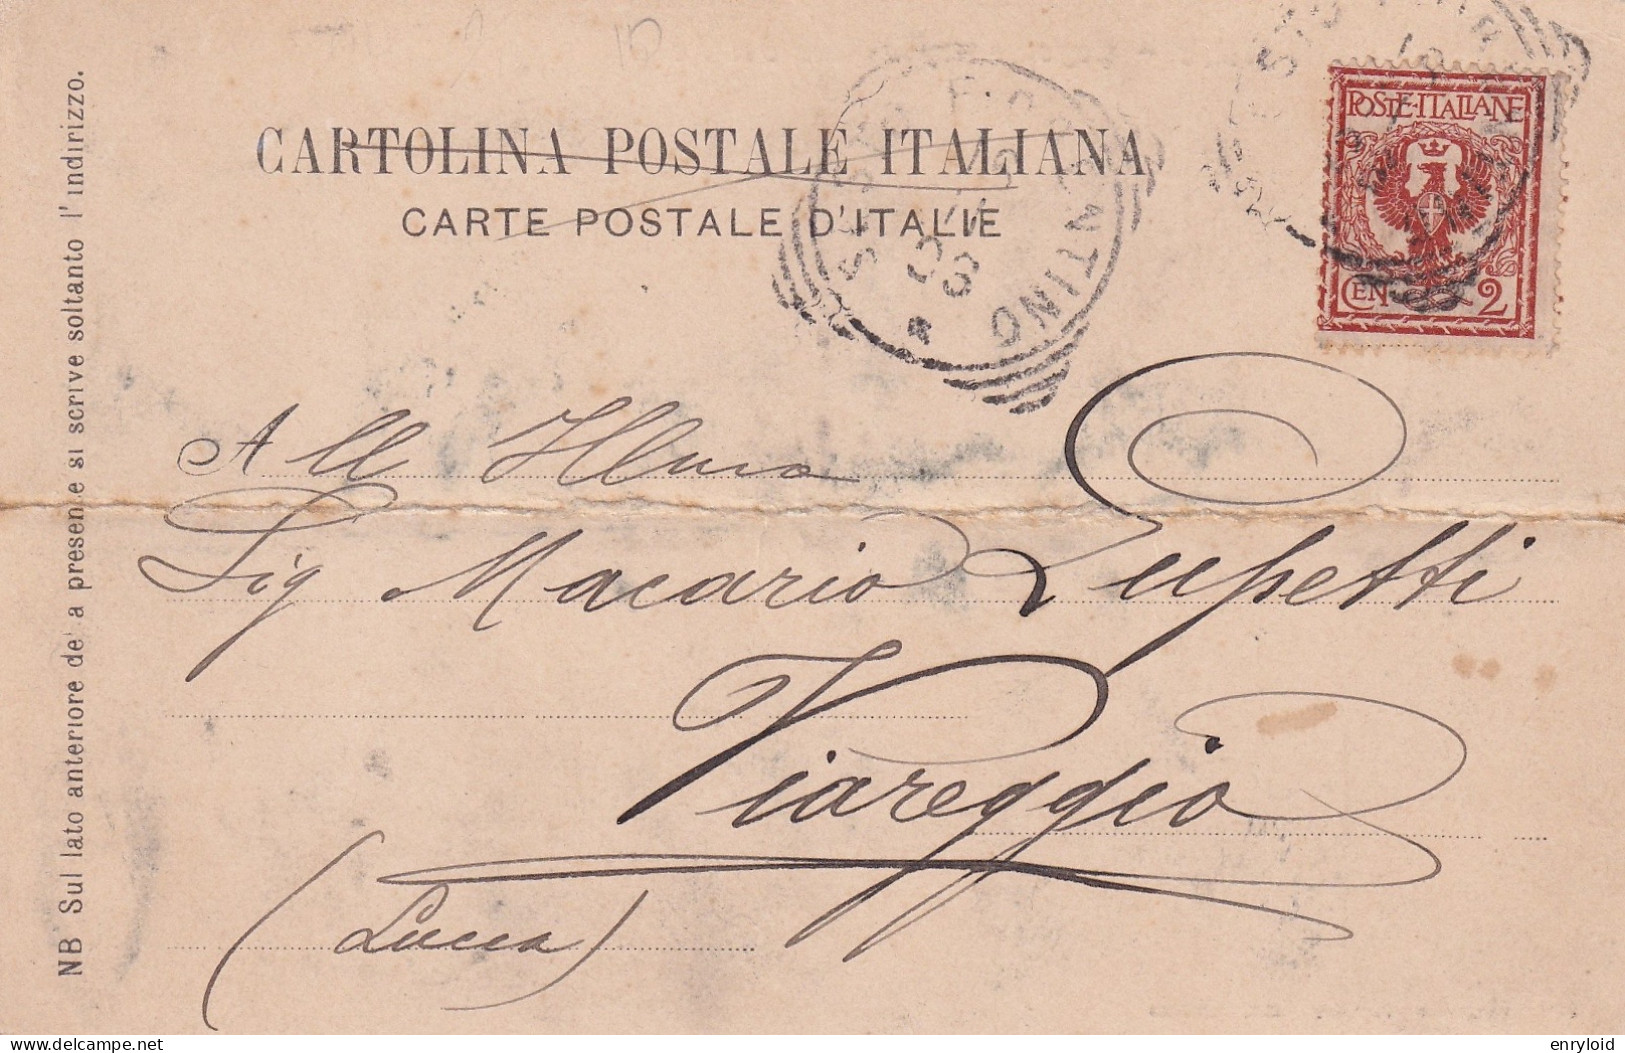 CARTOLINA POSTALE ITALIANA
CARTE POSTALE D'ITALIE
NB Sul lato anteriore de' a presen.e si scrive soltanto l'indirizzo.
POSTE·ITALIANE
CEN 2
SESTO FIORENTINO
All Illmo
Sig Macario Lupetti
Viareggio
(Lucca)
delcampe.net
enryloid